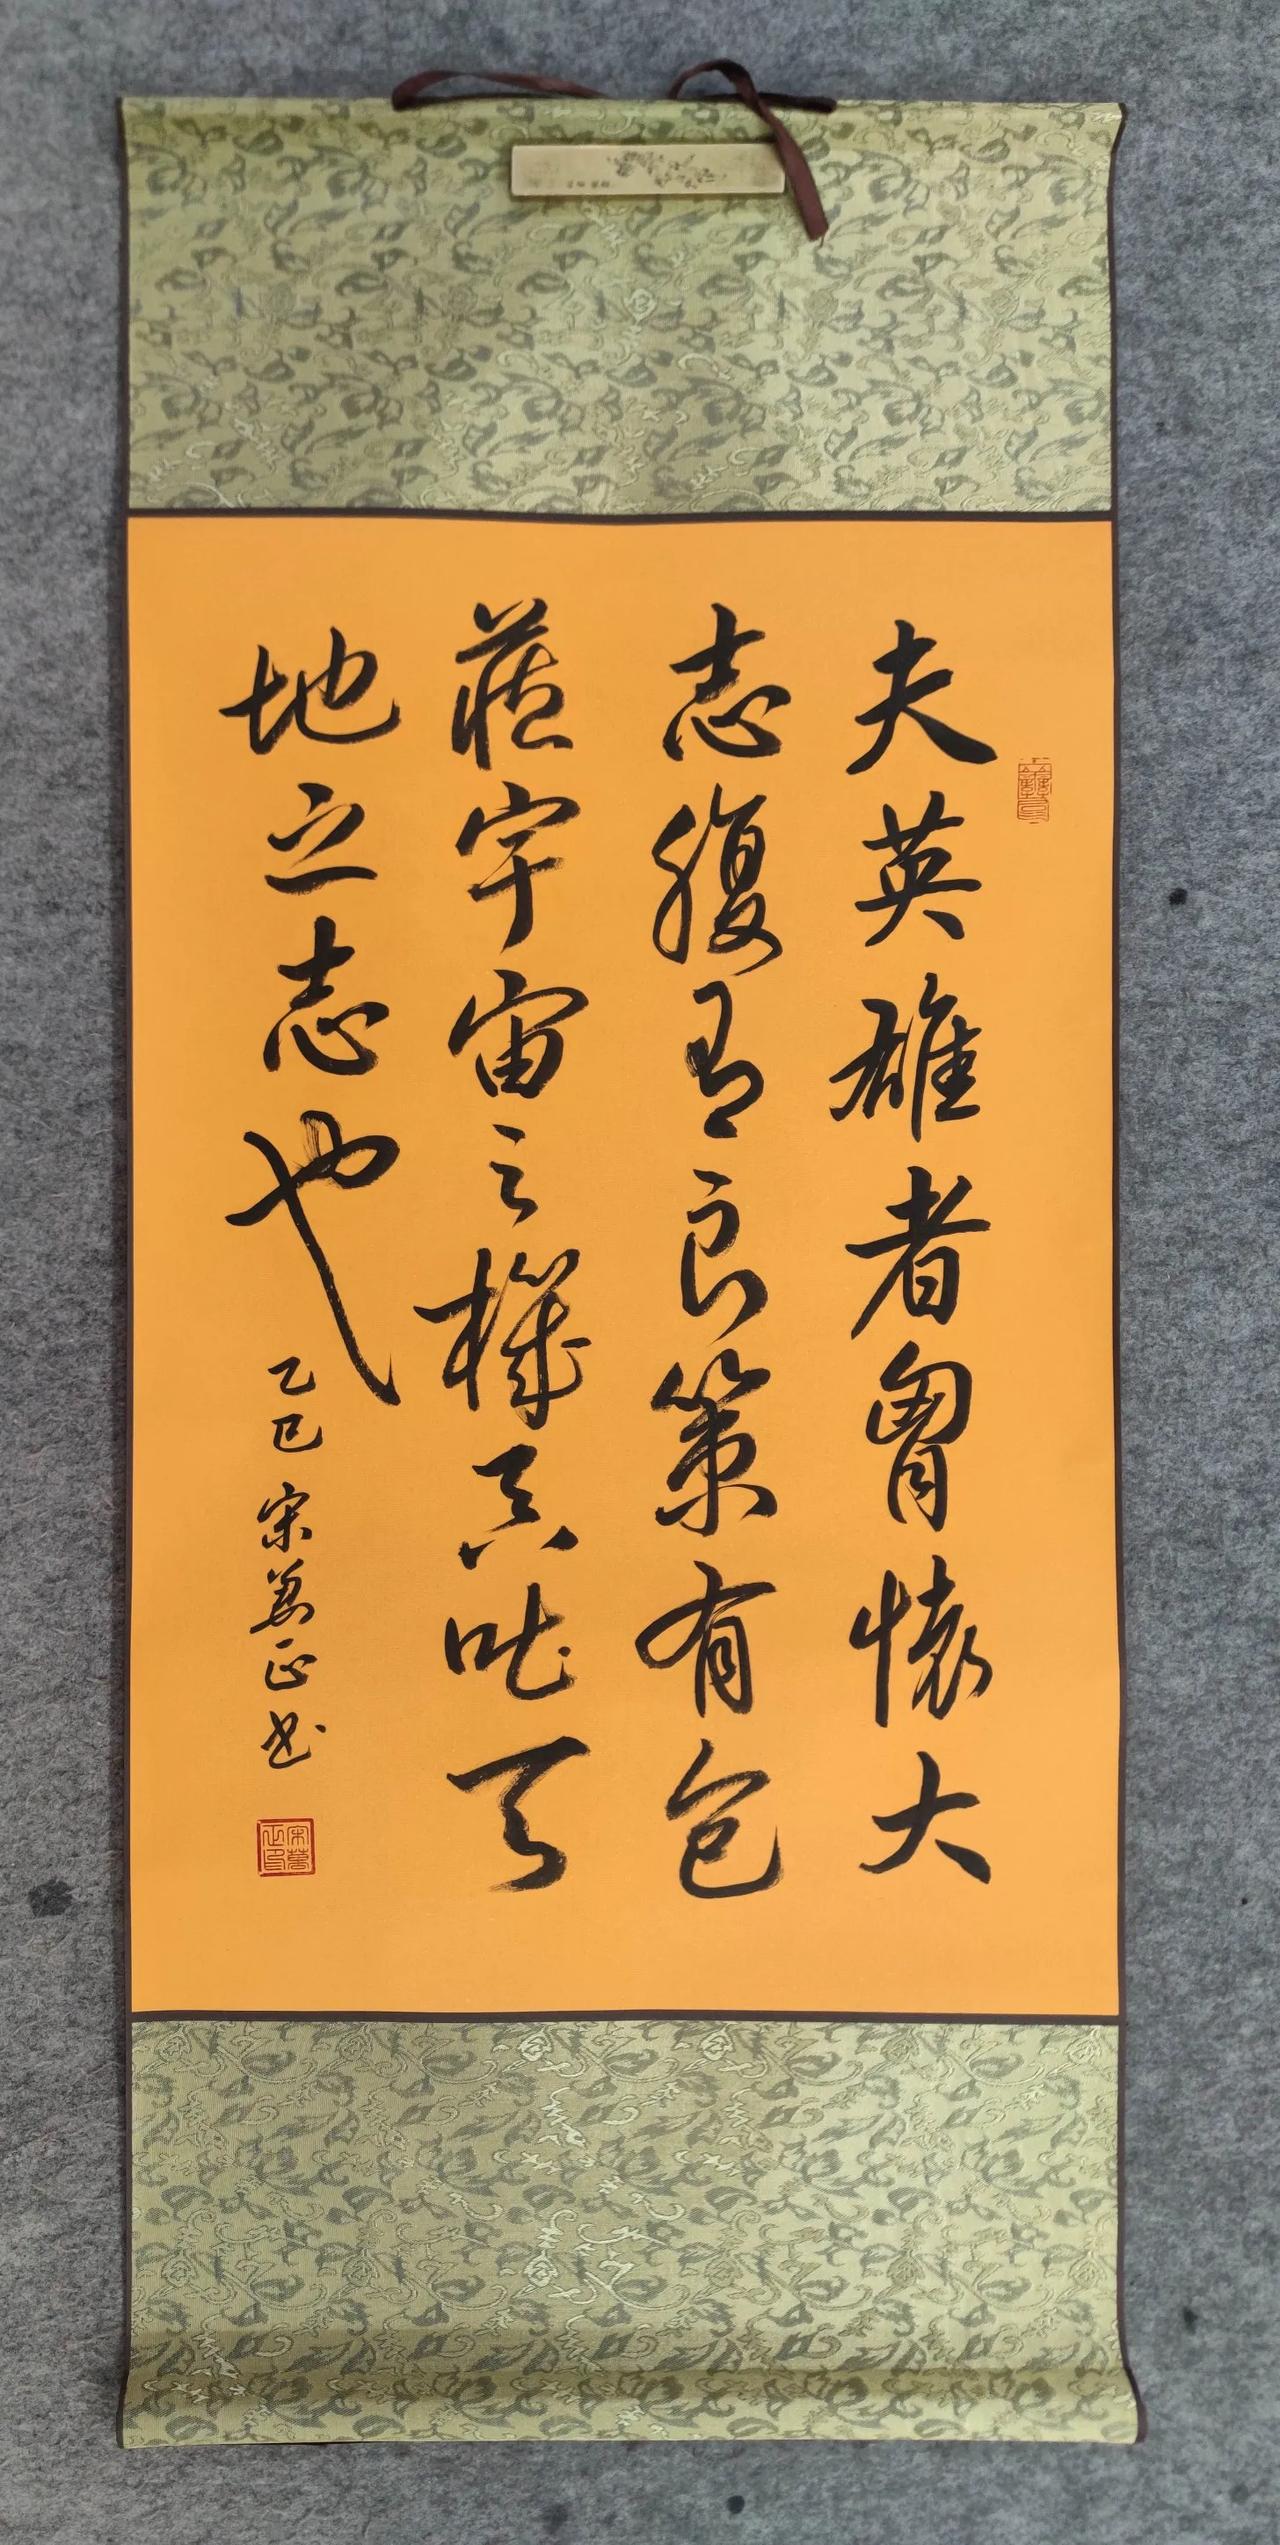 夫英雄者胷懷大
志腹有良策有包
藏宇宙之機吞吐天
地之志也
乙巳 宋萬正書
宋萬正印